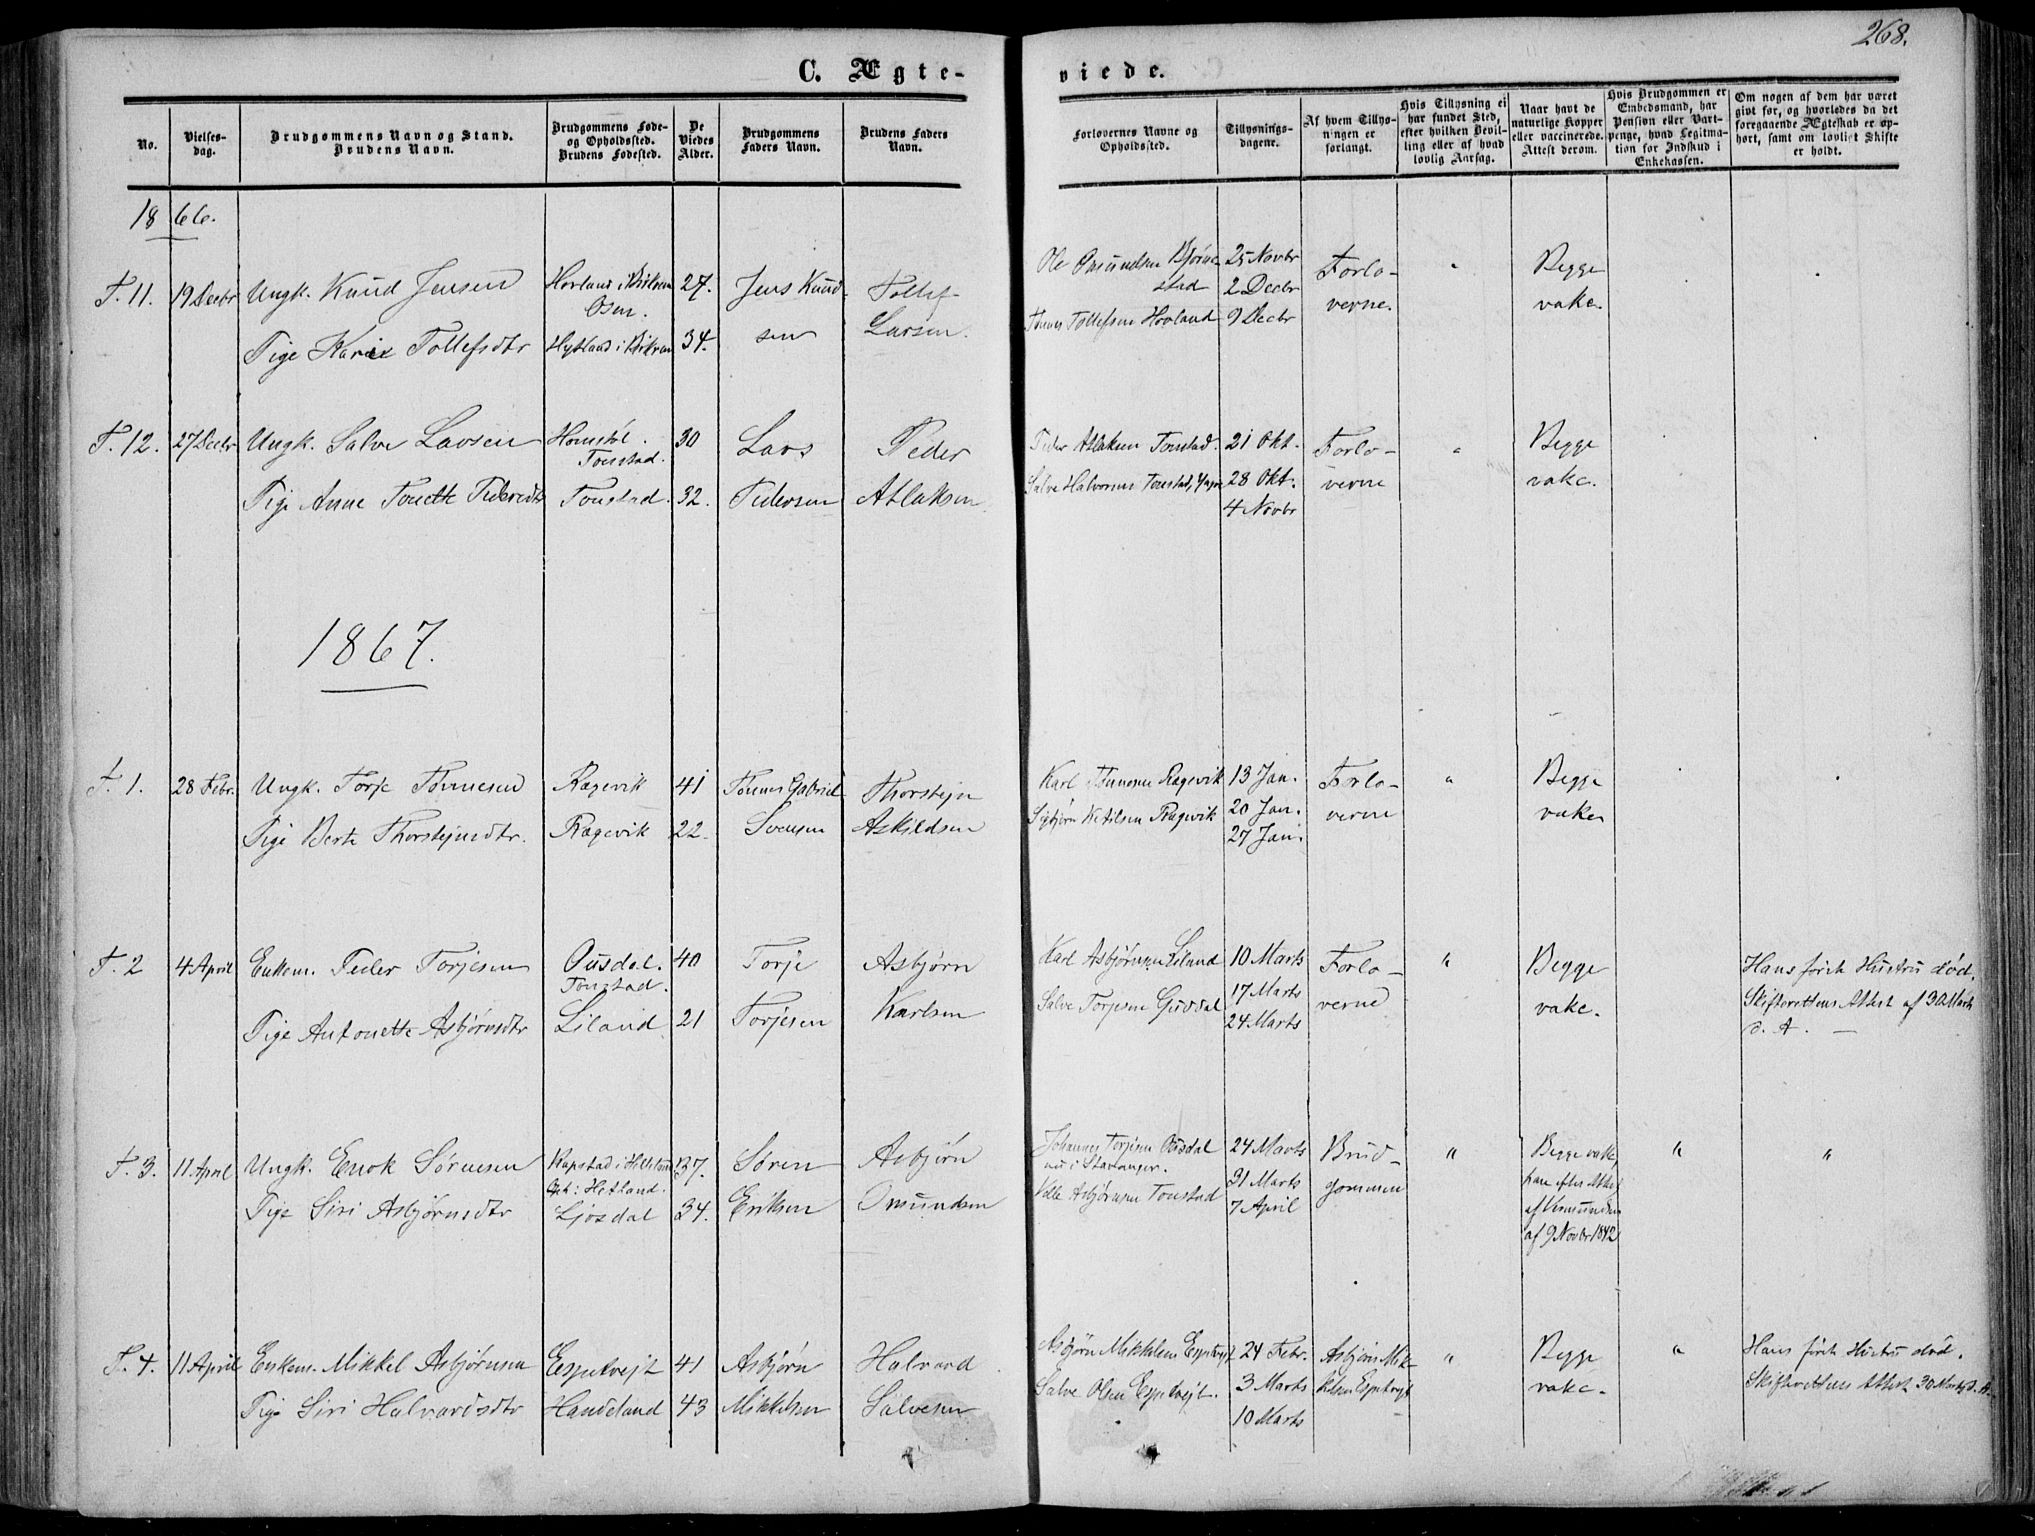 268.
C. Ægte-
viede.
No.
Vielses-
dag.
Brudgommens Navn og Stand.
Brudens Navn.
Brudgommens Føde-
og Opholdssted.
Brudens Fødested.
De
Viedes
Alder.
Brudgommens
Faders Navn.
Brudens Faders
Navn.
Forlovernes Navne og
Opholdssted.
Tillysnings-
dagene.
Af hvem Tillys-
ningen er
forlangt.
Hvis Tillysning ei
har fundet Sted,
efter hvilken Bevil-
ling eller af hvad
lovlig Aarsag.
Naar havt de
naturlige Kopper
eller vaccinerede.
Attest derom.
Hvis Brudgommen er
Embedsmand, har
Pension eller Vart-
penge, hvad Legitima-
tion for Indskud i
Enkekassen.
Om nogen af dem har været
gift før, og hvorledes da det
foregaaende Ægteskab er op-
hørt, samt om lovligt Skifte
er holdt.
1866.
F. 11.
19 Decbr
Ungk. Knud Jensen
Tige Karie Tollefsdtr
Osen.
27.
34.
Jens Knud-
sen
Tollef
Larsen.
Ole Omundsen Bjørne-
stad
Tønnes Tollefsen Hovland
25 Novbr
2 Decbr
9 Decbr
Forlo-
verne.
"
Begge
vakc.
F. 12.
27 Decbr
Ungk. Salve Larsen
Tige Anne Tonette Pedersdtr
Homstøl.
Tonstad.
Tonstad.
30
32.
Lars
Pedersen
Peder
Atlaksen
Peder Atlaksen Tonstad.
Salve Halvorsen Tonstad,
21 Okt.
28 Okt.
4 Novbr
Forlo-
verne
"
Begge
vakc.
1867.
F. 1.
28 Febr.
Ungk. Torje Tønnesen
Tige Berte Thorstejnsdtr.
Rægevik
Rægevik
41
22.
Tønnes Gabriel
Svensen
Thorstejn
Askildsen
Karl Tønnesen Rægevik
Sigbjørn Ketilsen Rægevik
13 Jan.
20 Jan.
27 Jan.
Forlo-
verne
"
Begge
vakc.
F. 2
4 April
Enkem. Peder Torjesen
Tige Antonette Asbjørnsdtr
Ousdal.
Tonstad.
Liland
40
21
Torje
Torjesen
Asbjørn
Karlsen
Karl Asbjørnsen Liland
Salve Torjesen Gusdal
10 Marts
17 Marts
24 Marts
Forlo-
verne
"
Begge
vakc.
Hans første Hustru død.
Skifterettens Attest af 30 Marts
d. A. —
F. 3.
11 April
Ungk. Enok Sørensen
Tige Siri Asbjørnsdtr
Oph: Hetland.
Ljosdal
37.
34.
Søren
Eriksen
Asbjørn
Omundsen
Johannes Torjesen Ousdal
nu i Stavanger.
Asbjørnsen Tonstad
24 Marts
31 Marts
7 April
Brud-
gommen
"
Begge vakc,
efter Attest
af
af 9 Novbr 1842
"
"
F. 4.
11 April
Enkem. Mikkel Asbjørnsen
Tige Siri Halvardsdtr
Espetvejt
Handeland
41
43
Asbjørn
Mikkelsen
Halvard
Salvesen
Asbjørn Mikkelsen Espetvejt
Salve Olsen Espetvejt.
24 Febr.
3 Marts
10 Marts
Asbjørn Mik-
kelsen Espetvejt
"
Begge
vakc.
"
Hans første Hustru død.
Skifterettens Attest 30 Marts d. A.